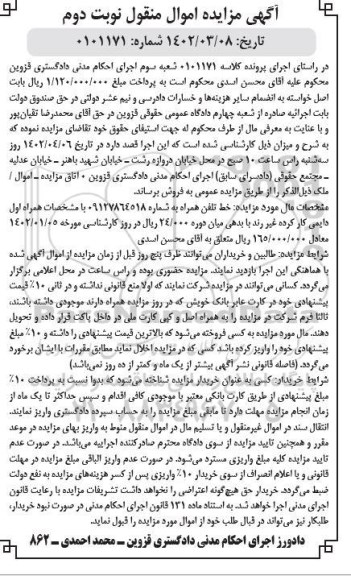 آگهی مزایده اموال منقول نوبت دوم
تاریخ: ۱۴۰۲/۰۳/۰۸ شماره: ۰۱۰۱۱۷۱
در راستای اجرای پرونده کلاسه ۰۱۰۱۱۷۱ شعبه سوم اجرای احکام مدنی دادگستری قزوین
محکوم علیه آقای محسن اسدی محکوم است به پرداخت مبلغ ۱/۱۲۰/۰۰۰/۰۰۰ ریال بابت
اصل خواسته به انضمام سایر هزینه‌ها و خسارات دادرسی و نیم عشر دولتی در حق صندوق دولت
بابت اجرائیه صادره از شعبه چهارم دادگاه عمومی حقوقی قزوین در حق آقای محمدرضا تقیان‌پور
و با عنایت به معرفی مال از طرف محکوم له جهت استیفای حقوق خود تقاضای مزایده نموده که
به شرح و میزان ذیل کارشناسی شده است که این اجرا قصد دارد در تاریخ ۱۴۰۲/۰۴/۰۶ روز
سه‌شنبه راس ساعت ۱۰ صبح در محل خیابان دروازه رشت ـ خیابان شهید باهنر ـ خیابان عدلیه
ـ مجتمع حقوقی (دادسرای سابق) اجرای احکام مدنی دادگستری قزوین ۰ اتاق مزایده ـ اموال /
ملک ذیل‌الذکر را از طریق مزایده عمومی به فروش برساند.
مشخصات مال مورد مزایده: خط تلفن همراه به شماره ۰۹۱۲۷۸۶۴۵۱۸ با مشخصات همراه اول
دایمی کار کرده غیر رند با بدهی میان دوره ۲۴/۰۰۰ ریال در روز کارشناسی مورخه ۱۴۰۲/۰۱/۰۵
معادل ۱۶۵/۰۰۰/۰۰۰ ریال متعلق به آقای محسن اسدی
شرایط مزایده: طالبین و خریداران می‌توانند ظرف پنج روز قبل از زمان مزایده از اموال آگهی شده
با هماهنگی این اجرا بازدید نمایند. مزایده حضوری بوده و راس ساعت در محل اعلامی برگزار
می‌گردد. کسانی می‌توانند در مزایده شرکت نمایند که اولا منع قانونی نداشته و در ثانی ۱۰٪ قیمت
پیشنهادی خود در کارت عابر بانک خویش که در روز مزایده همراه دارند موجودی داشته باشند،
ثالثا فرم شرکت در مزایده را به همراه اصل و کپی کارت ملی در داخل پاکت قرار داده و تحویل
دهند. مال مورد مزایده به کسی فروخته می‌شود که بالاترین قیمت پیشنهادی را داشته و ۱۰٪ مبلغ
پیشنهادی خود را واریز کرده باشد کسی که در مزایده اخلال نماید مطابق مقررات با ایشان برخورد
می‌گردد. (فاصله قانونی نشر آگهی بیشتر از یک ماه و کمتر از ده روز نمی‌باشد)
شرایط خریدار: کسی به عنوان خریدار مزایده شناخته می‌شود که بدوا نسبت به پرداخت ۱۰٪
مبلغ پیشنهادی از طریق کارت بانکی معتبر با موجودی کافی اقدام و سپس حداکثر تا یک ماه از
زمان انجام مزایده مهلت دارد تا مابقی مبلغ مزایده را به حساب سپرده دادگستری واریز نمایند.
انتقال سند در اموال غیرمنقول و یا تسلیم مال در اموال منقول منوط به واریز بهای مزایده در موعد
مقرر و همچنین تایید مزایده از سوی دادگاه محترم صادرکننده اجراییه می‌باشد. در صورت عدم
تایید مزایده کلیه مبلغ واریزی مسترد می‌شود. در صورت عدم واریز الباقی مبلغ مزایده در مهلت
قانونی و یا اعلام انصراف از سوی خریدار ۱۰٪ واریزی پس از کسر هزینه‌های مزایده به نفع دولت
ضبط می‌گردد. خریدار حق هیچ‌گونه اعتراضی را نخواهد داشت تشریفات مزایده با رعایت قانون
اجرای مدنی اجرا خواهد شد. به استناد ماده ۱۳۱ قانون اجرای احکام مدنی در صورت نبود خریدار،
طلبکار نیز می‌تواند در قبال طلب خود از اموال مورد مزایده را قبول نماید.
دادورز اجرای احکام مدنی دادگستری قزوین ـ محمد احمدی ـ ۸۶۲